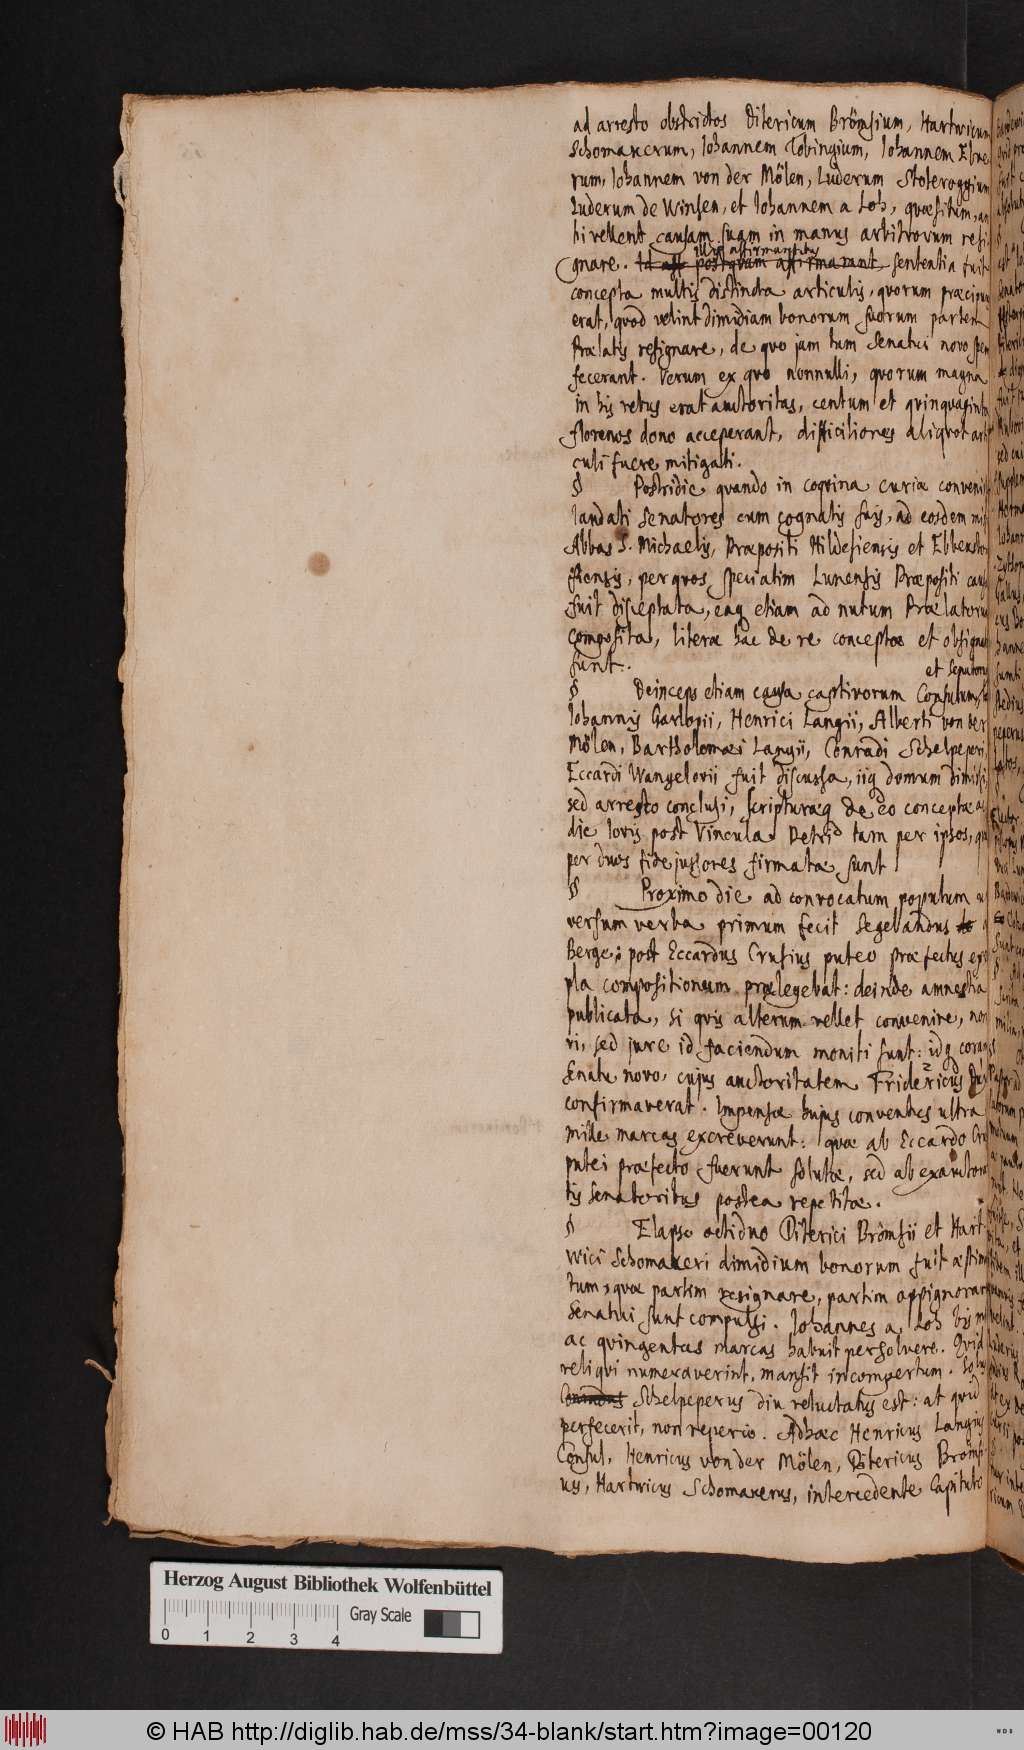 ad arresto obstrictos Ditericum Brömsium, Hartwicum
Schomakerum, Iohannem Tobingium, Iohannem Elve
rum, Iohannem von der Mölen, Luderum Stoteroggium
Luderum de Winsen, et Iohannem a Loh, quæsitum, an
hi vellent causam suam in manus arbitrorum resi
illis affirmantibus
gnare. postquam affirmarant sententia fuit
concepta multis distincta articulis, quorum præcipuu
erat, quod velint dimidiam bonorum suorum partem
Prælatis resignare, de quo jam tum Senatui novo spem
fecerant. Verum ex quo nonnulli, quorum magna
in his rebus erat auctoritas, centum et quinquaginta
florenos dono acceperant, difficiliores aliquot arti
culi fuere mitigati.
§ Postridie quando in coquina curiæ convenis
laudati Senatores cum cognatis suis, ad eosdem mis
Abbas S. Michaelis, Præpositi Hildesiensis et Ebbensto
ffensis, per quos speciatim Lunensis Præpositi caus
fuit disceptata, eaq etiam ad nutum Prælatoru
composita, literæ hac de re conceptæ et obsigna
sunt.
et Senatoru
§ Deinceps etiam causa captivorum Consulum,
Iohannis Garlopii, Henrici Langii, Alberti von der
Mölen, Bartholomæi Langii, Conradi Schelpeperi,
Eccardi Wangelovii fuit discussa, iiq domum dimissi
sed arresto conclusi, scripturæq de eo conceptæ ac
die Iovis post Vincula Petri tam per ipsos, qu
per duos fidejussores firmatæ sunt
§ Proximo die ad convocatum populum u
versum verba primum fecit Segebandus
Berge; post Eccardus Crusius puteo præfectus ex
pla compositionum prælegebat: deinde amnestia
publicata, si quis alterum vellet convenire, non
vi, sed jure id faciendum moniti sunt: idq coram
Senatu novo, cujus auctoritatem Fridericus Du
confirmaverat. Impensæ hujus conventus ultra
mille marcas excreverunt: quæ ab Eccardo Cru
putei præfecto fuerunt solutæ, sed ab exauctora
tis Senatoribus postea repetitæ.
§ Elapso octiduo Diterici Brömsii et Hart
wici Schomakeri dimidium bonorum fuit æstima
tum, quæ partim resignare, partim oppignorare
Senatui sunt compulsi. Iohannes a Loh bis m
ac quingentas marcas habuit persolvere. Quid
reliqui numeraverint, mansit incompertum. Solus
Conradus Schelpeperus diu reluctatus est: at quid
perfecerit, non reperio. Adhæc Henricus Langius
Consul, Henricus von der Mölen, Ditericus Bröms
us, Hartwicus Schomakerus, intercedente Capitulo
Herzog August Bibliothek Wolfenbüttel
Gray Scale
0 1 2 3 4
© HAB http://diglib.hab.de/mss/34-blank/start.htm?image=00120